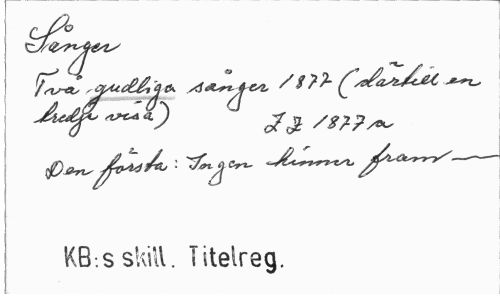 Sånger
Två gudliga sånger 1877 (därtill en
tredje visa) ZZ 1877 a
Den första: Ingen hinner fram —
KB:s skill. Titelreg.